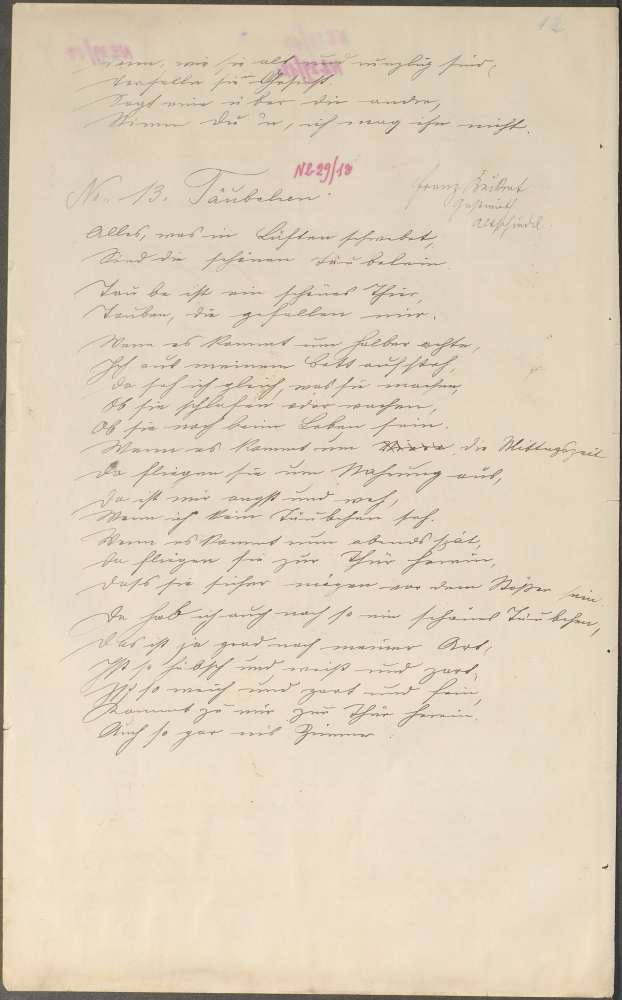 12
wenn, wie sie alt und runzlig sind,
derselben sie Gesicht.
Sagt eine über die andre,
Nimm du 'n, ich mag ihn nicht.
NL 29/13
No. 13. Täubelein.
Franz
Gastwirth
Altschiedel
Alles, was in Lüften schwebet,
Sind die schönen Täubelein.
Taube ist ein schönes Thier,
Tauben, die gefallen mir.
Wenn es kommt um halber achte,
Ich aus meinem Bett aufsteh,
Da seh ich gleich, was sie machen,
Ob sie schlafen oder wachen,
Ob sie noch beim Leben sein.
Wenn es kommt um die Mittagszeit
Da fliegen sie um Nahrung aus,
Da ist mir angst und weh,
Wenn ich kein Täubchen seh.
Wenn es kommt nun abends spät,
Da fliegen sie zur Thür herein,
Dass sie sicher mögen vor dem Stößer sein.
Da hab ich auch noch so ein schönes Täubchen,
Das ist ja grad nach meiner Art,
Ist so hübsch und weiß und zart,
Ist so weich und zart und fein,
Kommt zu mir zur Thür herein.
Auch so gar ins Zimmer.